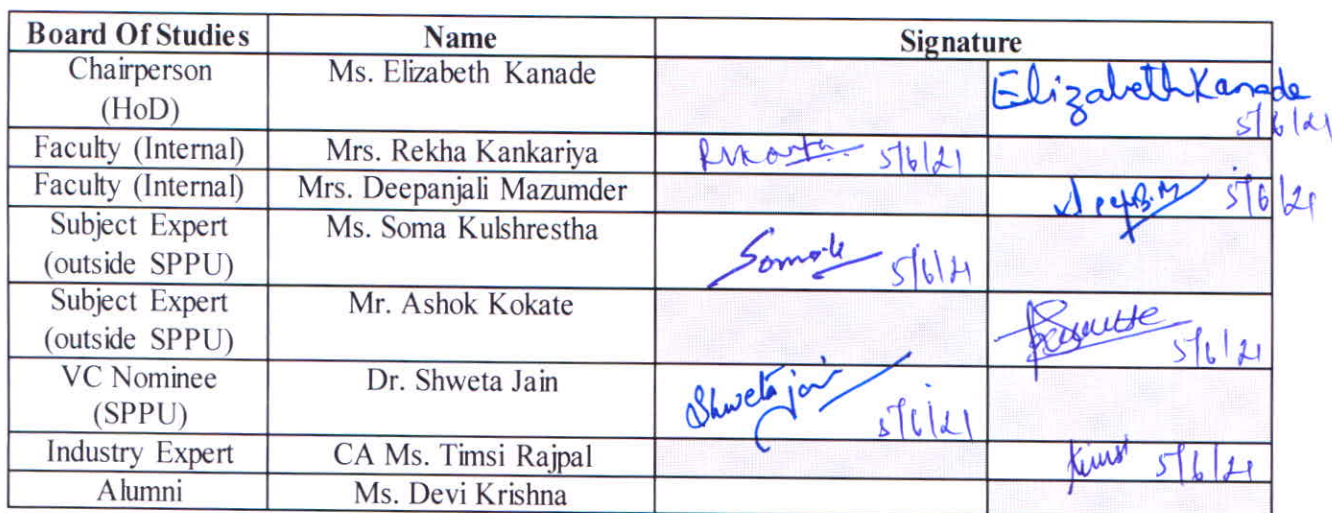 Board Of Studies Name Signature
Chairperson Ms. Elizabeth Kanade Elizabeth Kanade
(HoD) 5/6/21
Faculty (Internal) Mrs. Rekha Kankariya 5/6/21
Faculty (Internal) Mrs. Deepanjali Mazumder 5/6/21
Subject Expert Ms. Soma Kulshrestha
(outside SPPU) 5/6/21
Subject Expert Mr. Ashok Kokate
(outside SPPU) 5/6/21
VC Nominee Dr. Shweta Jain Shweta jain
(SPPU) 5/6/21
Industry Expert CA Ms. Timsi Rajpal 5/6/21
Alumni Ms. Devi Krishna